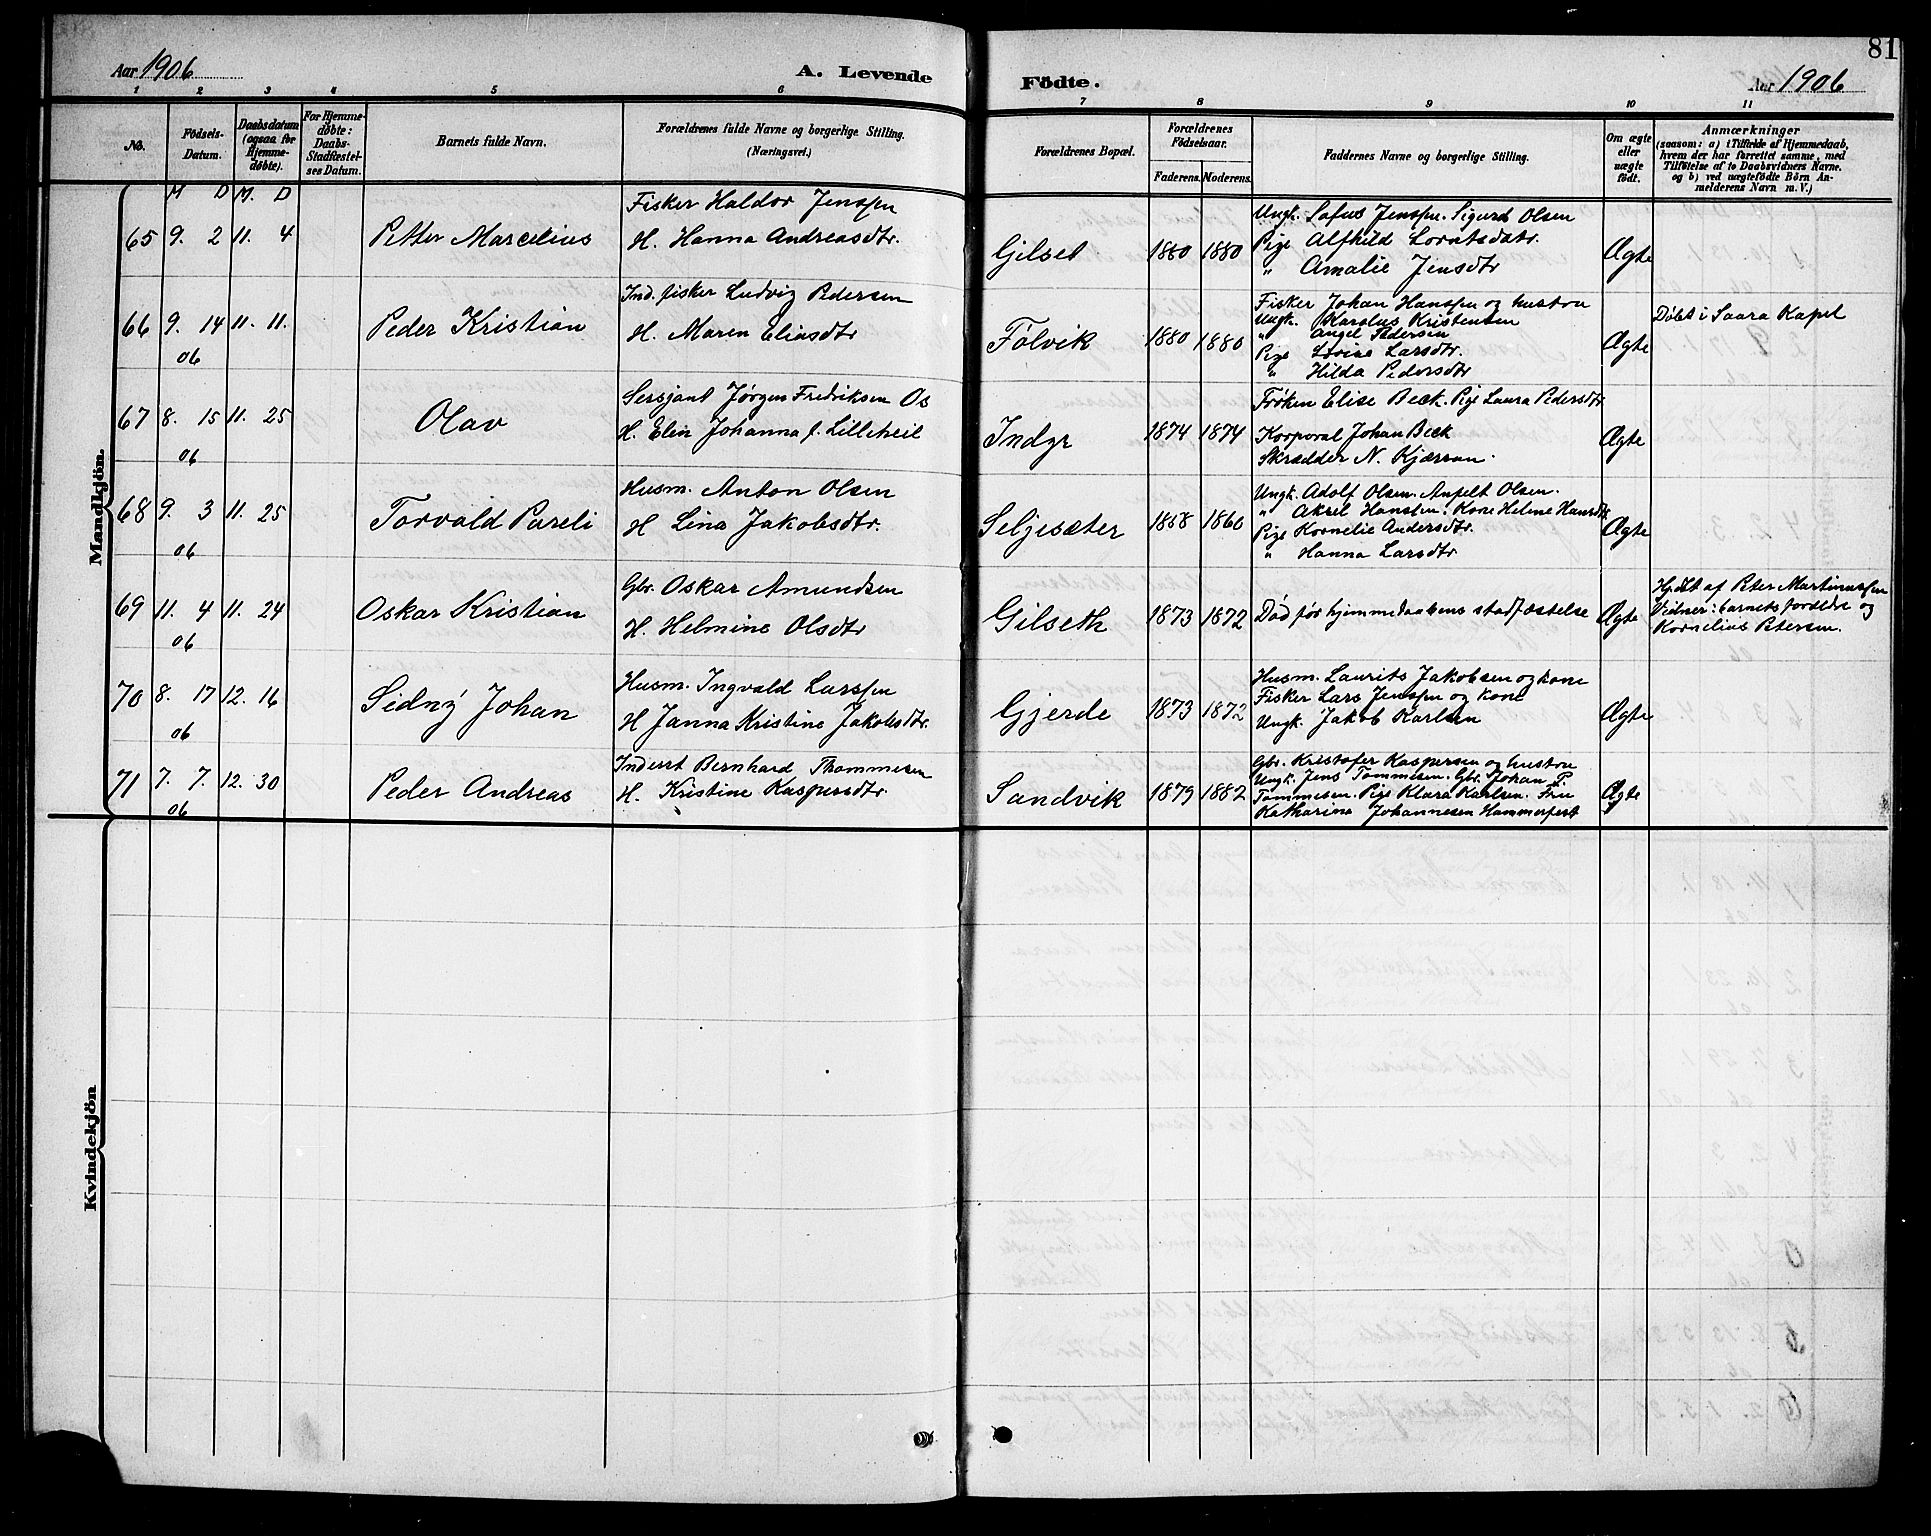 81
Aar 1906
A. Levende
Födte.
Aar 1906
1 2 3 4 5 6 7 8 9 10 11
No.
Födsels-
Datum.
Daabsdatum
(ogsaa for
Hjemme-
døbte).
For Hjemme-
døbte:
Daabs-
Stadfæstel-
ses Datum.
Barnets fulde Navn.
Forældrenes fulde Navne og borgerlige Stilling.
(Næringsvei.)
Forældrenes Bopæl.
Forældrenes
Födselsaar.
Faderens. Moderens.
Faddernes Navne og borgerlige Stilling.
Om ægte
eller
uægte
født.
Anmærkninger
(saasom: a) i Tilfælde af Hjemmedaab,
hvem der har forrettet samme, med
Tilföielse af to Daabsvidners Navne.
og b) ved uægtefödte Börn An-
melderens Navn m. V.)
Mandkjön.
M D M. D
65 9. 2 11. 4
Petter Marcelius
Fisker Haldor Jenssen
H. Hanna Andreasdtr.
Gilset
1880 1880
Ungk. Sofus Jenssen. Sigurd Olsen
Pige Alfhild Lorntsdatr.
" Amalie Jensdtr
Ægte
66 9. 14 11. 11.
06
Peder Kristian
Ind. fisker Ludvig Pedersen
H. Maren Eliasdtr
Følvik
1880 1880
Fisker Johan Hanssen og hustru
Ungk. Karolus Kristensen
" Angel Pedersen
Pige Lovise Larsdtr.
" Hilda Pedersdtr
Ægte
Døbt i Saara Kapel
67 8. 15 11. 25
06
Olav
Sersjant Jørgen Fredriksen Os
H. Elin Johanna f. Lilleheil
Indyr
1874 1874
Frøken Elise Beck. Pige Laura Pedersdtr
Korporal Johan Beck
Skrædder N. Kjærran.
Ægte
68 9. 3 11. 25
06
Torvald Pareli
Husm. Anton Olsen
H Lina Jakobsdtr.
Seljesæter
1858 1860
Ungk. Adolf Olsen. Anfelt Olsen.
" Aksel Hanssen. Kone Helene Hansdtr
Pige Kornelie Andersdtr.
" Hanna Larsdtr
Ægte
69 11. 4 11. 24
06
Oskar Kristian
Gbr. Oskar Amundsen
H. Helmine Olsdtr
Gilseth
1873 1872
Død før hjemmedaabens stadfæstelse
Ægte
Hjdbt af Peter Martinussen
Vidner: barnets forældre og
Kornelius Petersen.
70 8. 17 12. 16
06
Sidny Johan
Husm. Ingvald Larssen
H Janna Kristine Jakobsdtr.
Gjerde
1873 1872
Husm. Laurits Jakobsen og kone
Fisker Lars Jenssen og kone
Ungk. Jakob Karlsen
Ægte
71 7. 7. 12. 30
06
Peder Andreas
Inderst Bernhard Thommesen
H. Kristine Kaspersdtr
Sandvik
1879 1882
Gbr. Kristofer Kaspersen og hustru
Ungk. Jens Tommesen. Gbr. Johan P.
Tommesen. Pige Klara Karlsen. Fru
Katharina Johannesen Hammerfest
Ægte
Kvindekjön